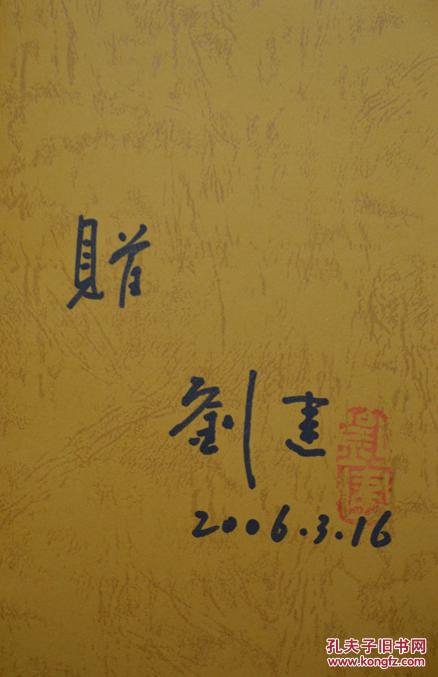 贈
劉建
2006.3.16
孔夫子旧书网
www.kongfz.com